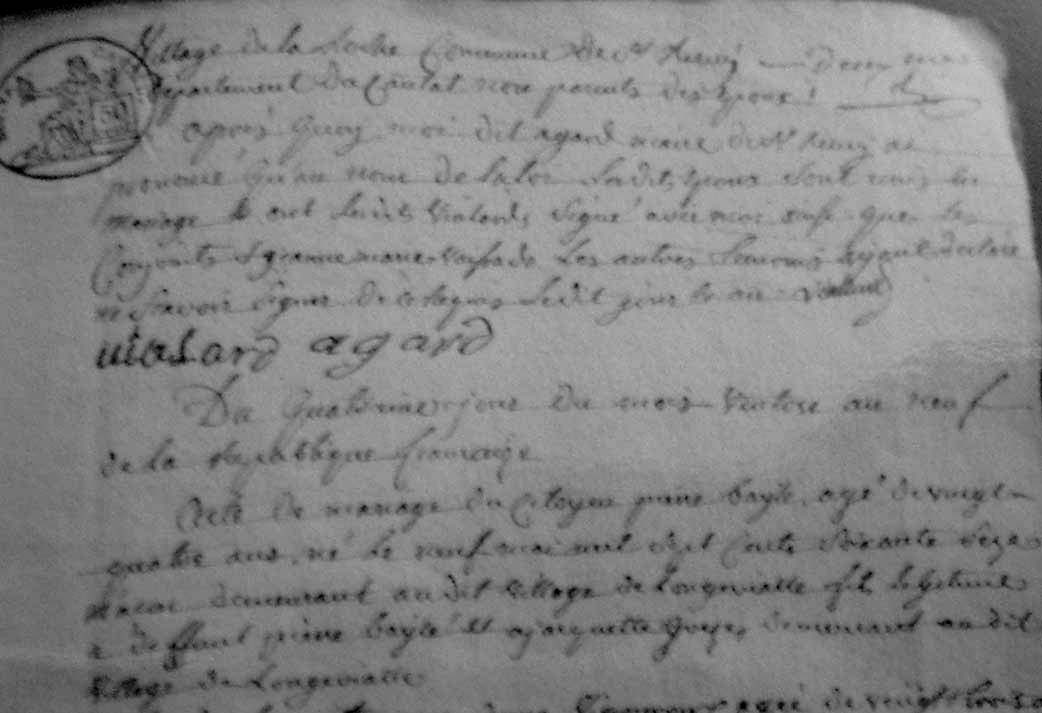 village de la Commune de St Remy deux
département du Cantal non parents des époux
après quoy moi dit agard maire de St Remy ai
prononcé qu'au nom de la loi lesdits époux sont unis en
mariage et ont lesdits vialards signé avec moi que les
Conjoints et jeanne marie les autres temoins ayant declaré
ne savoir signer de ce requis ledit jour et an vialard
vialard agard
Du quatorzieme jour du mois ventose an neuf
de la republique francaise
Acte de mariage du Citoyen pierre bayle agé de vingt
quatre ans, né le neuf mai mil sept cents soixante seze
demeurant au dit village de Longevialle fils legitime
a deffunt pierre bayle et demeurant au dit
village de Longevialle
agé de veingt trois